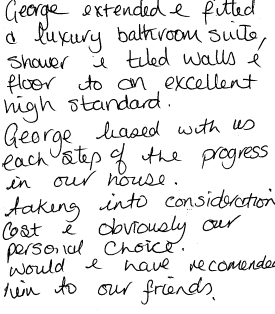 George extended & fitted
a luxury bathroom suite,
shower & tiled walls &
floor to an excellent
high standard.
George liased with us
each step of the progress
in our house.
taking into consideration
Cost & obviously our
personal choice.
would & have recomended
him to our friends.